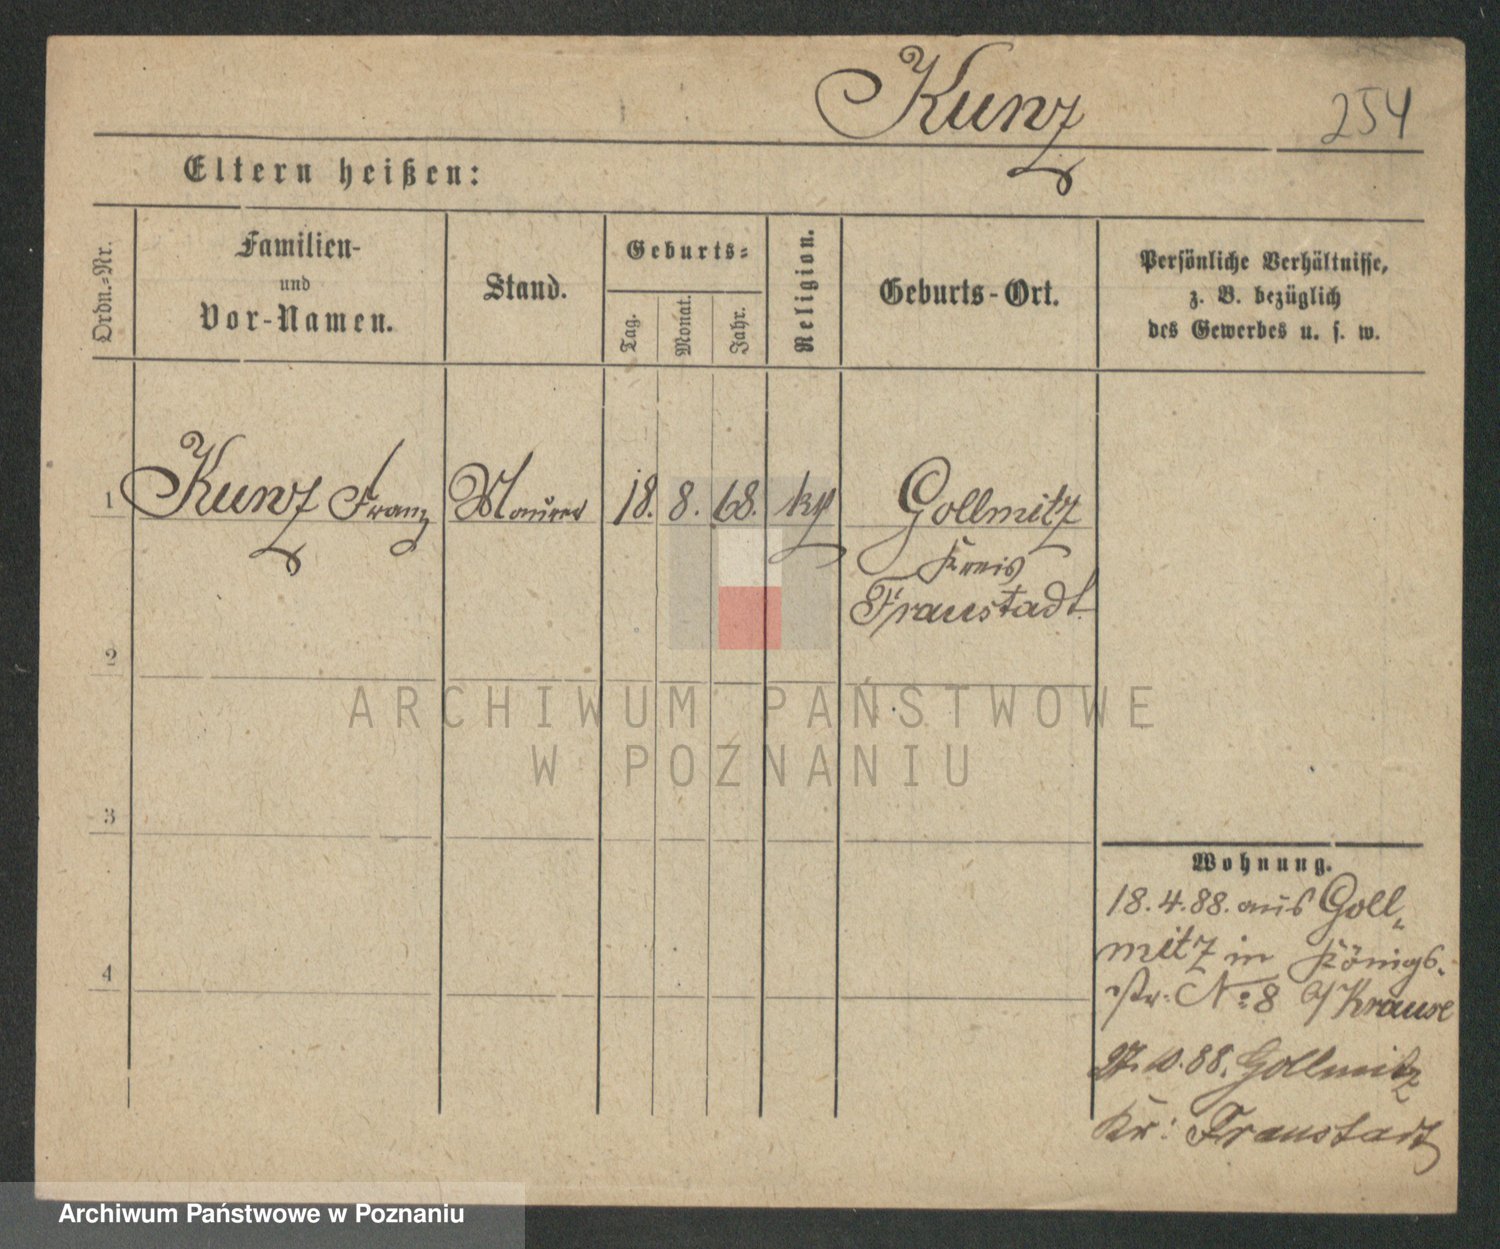 Kunz
254
Eltern heißen:
Ordn.-Nr.
Familien-
und
Vor-Namen.
Stand.
Geburts-
Tag.
Monat.
Jahr.
Religion.
Geburts-Ort.
Persönliche Verhältnisse,
z. B. bezüglich
des Gewerbes u. s. w.
1 Kunz Franz Maurer 18. 8. 68. kth Gollmitz
Kreis
Fraustadt
2
ARCHIWUM PAŃSTWOWE
W POZNANIU
3
4
Wohnung.
18.4.88. aus Goll„
mitz in Königs-
str. No 8 b/ Krause
27. 10. 88. Gollmitz
Kr: Fraustadt
Archiwum Państwowe w Poznaniu